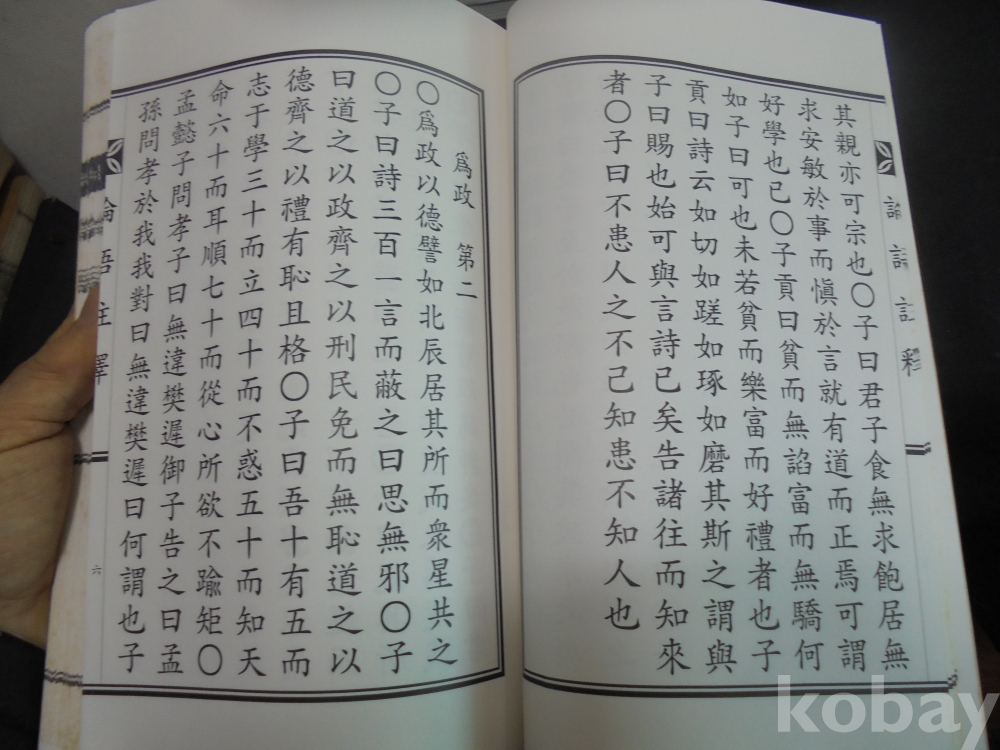 論語註釋
其親亦可宗也〇子曰君子食無求飽居無
求安敏於事而愼於言就有道而正焉可謂
好學也已〇子貢曰貧而無諂富而無驕何
如子曰可也未若貧而樂富而好禮者也子
貢曰詩云如切如蹉如琢如磨其斯之謂與
子曰賜也始可與言詩已矣告諸往而知來
者〇子曰不患人之不己知患不知人也
爲政 第二
〇爲政以德譬如北辰居其所而衆星共之
〇子曰詩三百一言而蔽之曰思無邪〇子
曰道之以政齊之以刑民免而無恥道之以
德齊之以禮有恥且格〇子曰吾十有五而
志于學三十而立四十而不惑五十而知天
命六十而耳順七十而從心所欲不踰矩〇
孟懿子問孝子曰無違樊遲御子告之曰孟
孫問孝於我我對曰無違樊遲曰何謂也子
論語註釋
六
kobay